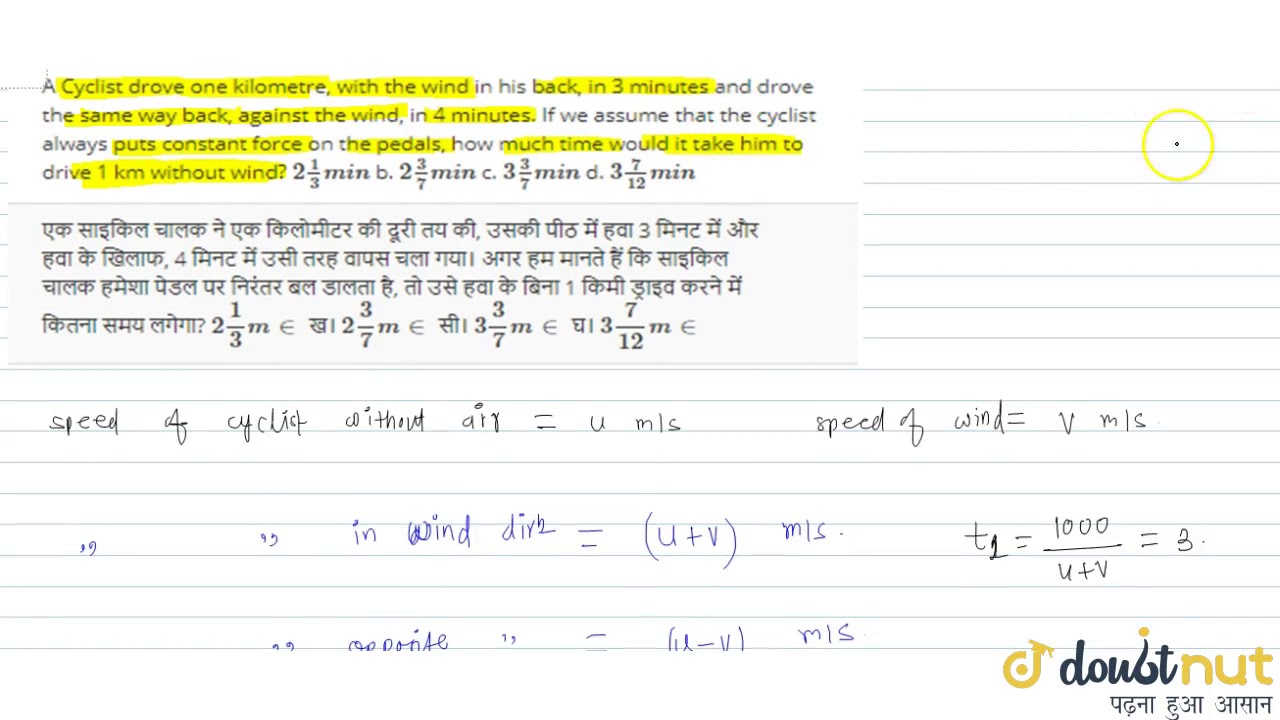 A Cyclist drove one kilometre, with the wind in his back, in 3 minutes and drove
the same way back, against the wind, in 4 minutes. If we assume that the cyclist
always puts constant force on the pedals, how much time would it take him to
drive 1 km without wind? 2 1/3 min b. 2 3/7 min c. 3 3/7 min d. 3 7/12 min
एक साइकिल चालक ने एक किलोमीटर की दूरी तय की, उसकी पीठ में हवा 3 मिनट में और
हवा के खिलाफ, 4 मिनट में उसी तरह वापस चला गया। अगर हम मानते हैं कि साइकिल
चालक हमेशा पेडल पर निरंतर बल डालता है, तो उसे हवा के बिना 1 किमी ड्राइव करने में
कितना समय लगेगा? 2 1/3 m ∈ ख। 2 3/7 m ∈ सी। 3 3/7 m ∈ घ। 3 7/12 m ∈
speed of cyclist without air = u m/s speed of wind = v m/s.
,, ,, in wind dirⁿ = (u+v) m/s. t1 = 1000/u+v = 3.
,, opposite ,, = (u-v) m/s.
doubtnut
पढ़ना हुआ आसान